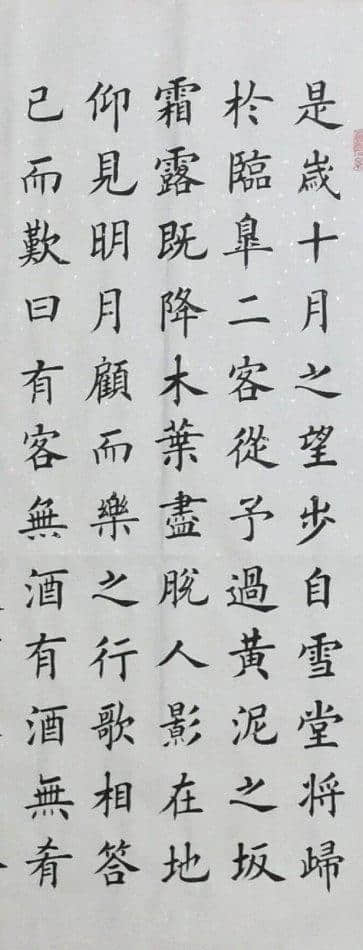 是歲十月之望步自雪堂將歸
於臨皐二客從予過黃泥之坂
霜露既降木葉盡脫人影在地
仰見明月顧而樂之行歌相答
已而歎曰有客無酒有酒無肴